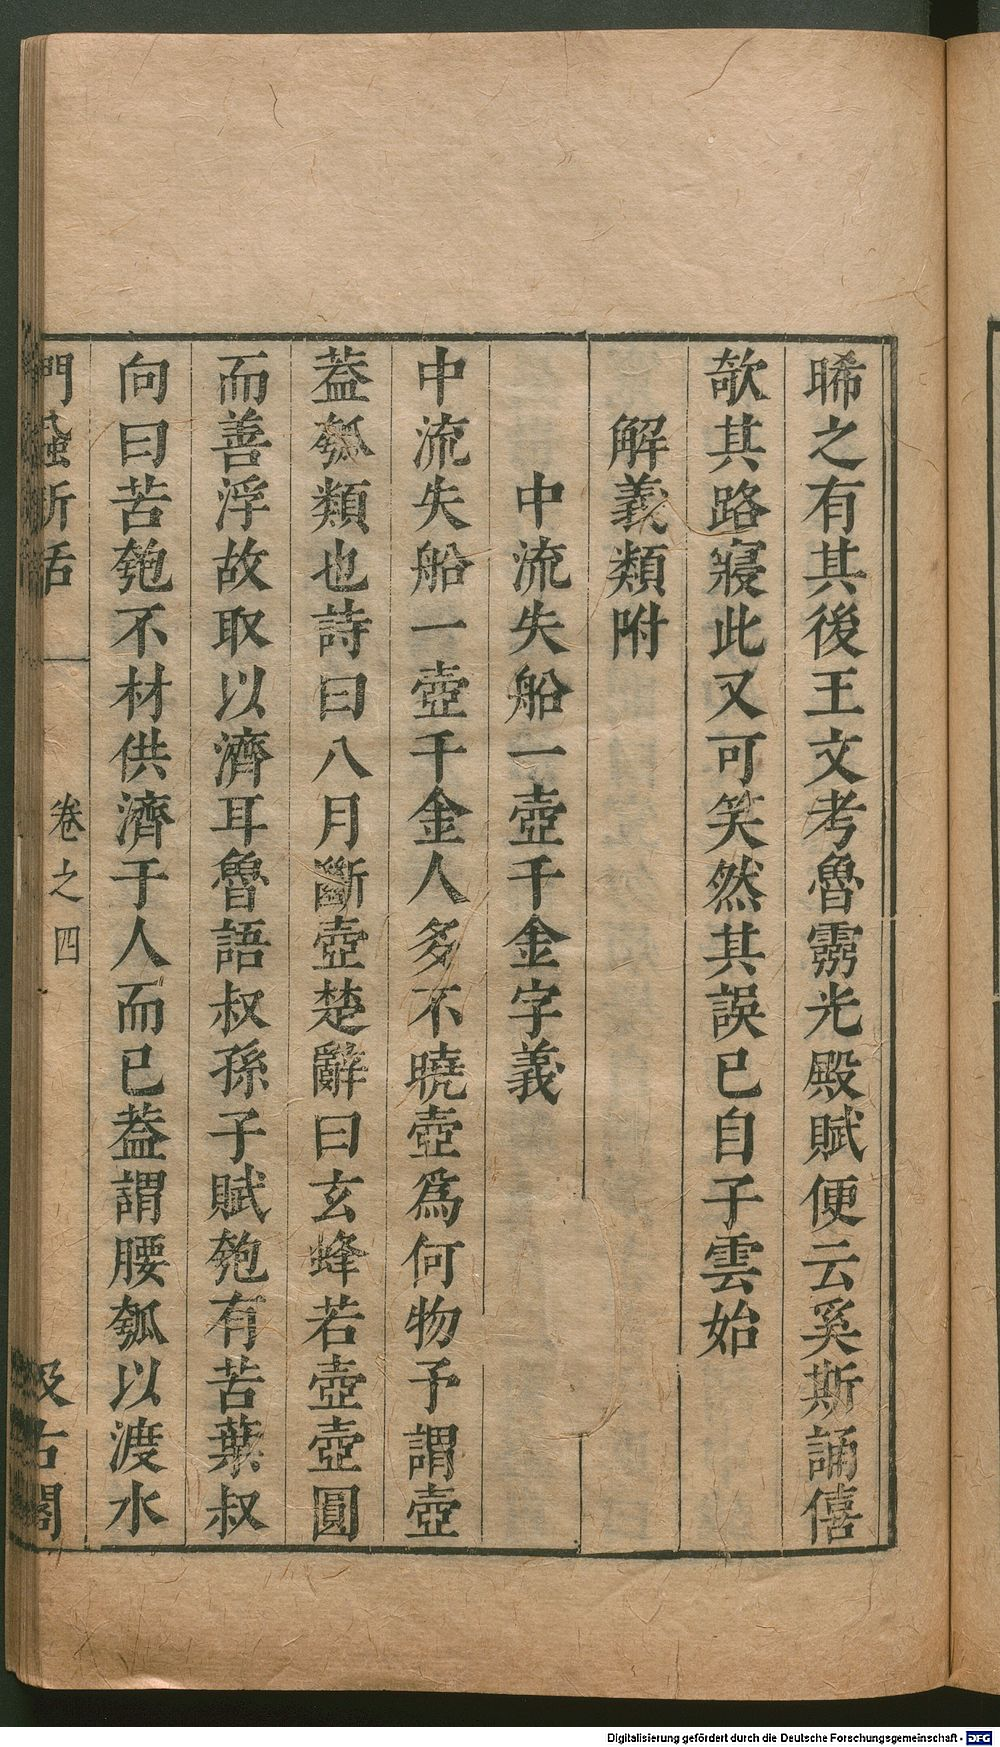 睎之有其後王文考魯靈光殿賦便云奚斯誦僖
欹其路寢此又可笑然其誤已自子雲始
解義類附
中流失船一壺千金字義
中流失船一壺千金人多不曉壺爲何物予謂壺
葢瓠類也詩曰八月斷壺楚辭曰玄蜂若壺壺圓
而善浮故取以濟耳魯語叔孫子賦匏有苦葉叔
向曰苦匏不材供濟于人而已葢謂腰瓠以渡水
門蝨新話 卷之四 汲古閣
Digitalisierung gefördert durch die Deutsche Forschungsgemeinschaft - DFG